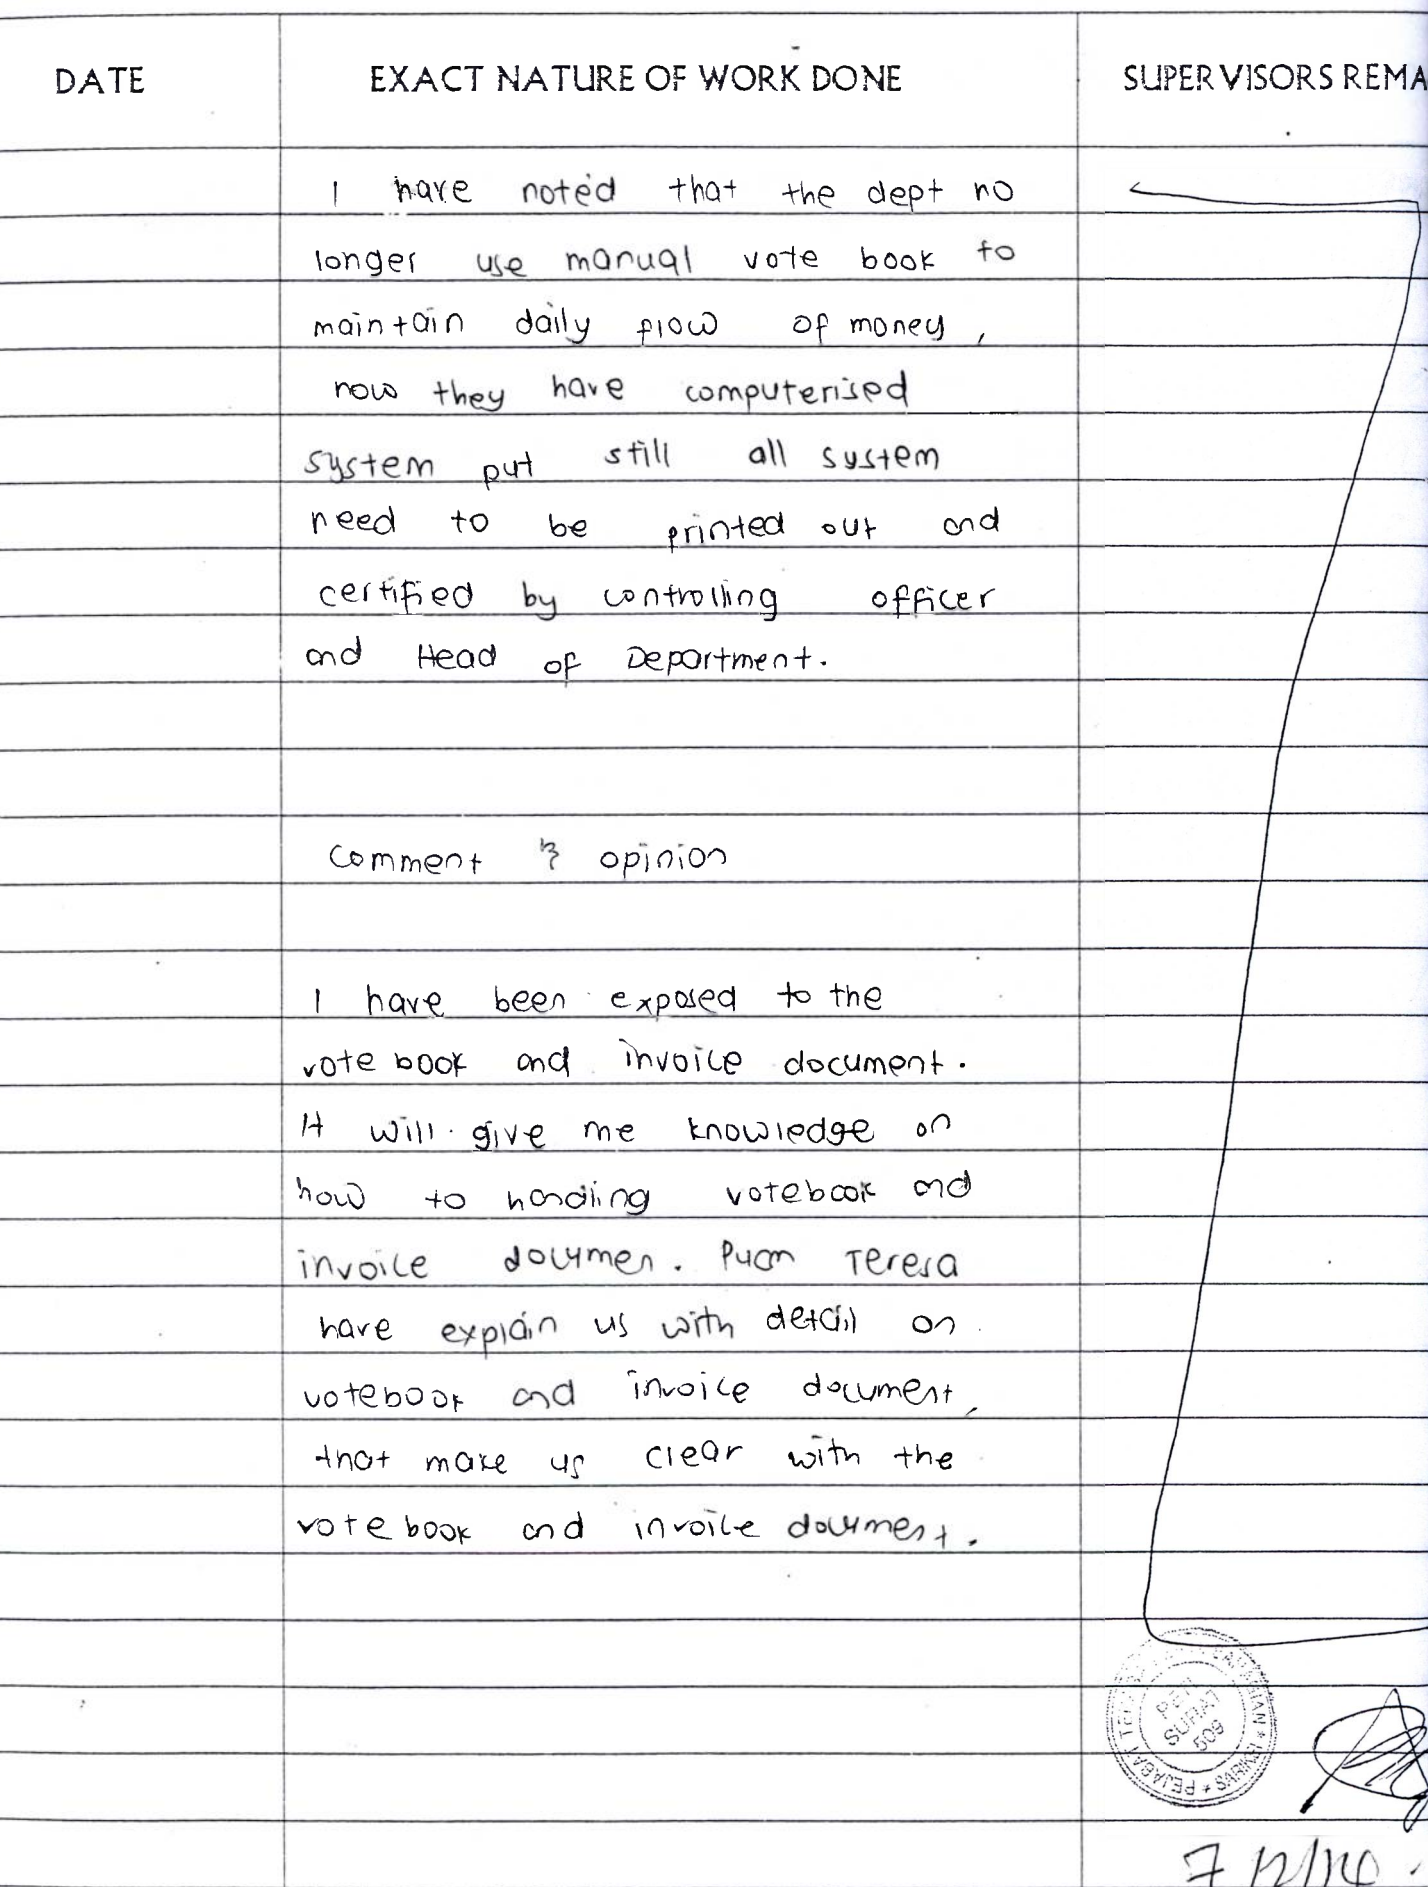 DATE EXACT NATURE OF WORK DONE SUPERVISORS REMA
I have noted that the dept no
longer use manual vote book to
maintain daily flow of money,
now they have computerised
system put still all system
need to be printed out and
certified by controlling officer
and Head of Department.
Comment & opinion
I have been exposed to the
vote book and invoice document.
It will give me knowledge on
how to handling votebook and
invoice documen. Puan Teresa
have explain us with detail on
votebook and invoice document,
that make us clear with the
vote book and invoice document.
PETI
SURAT
509
PEJABAT
SARIKEI